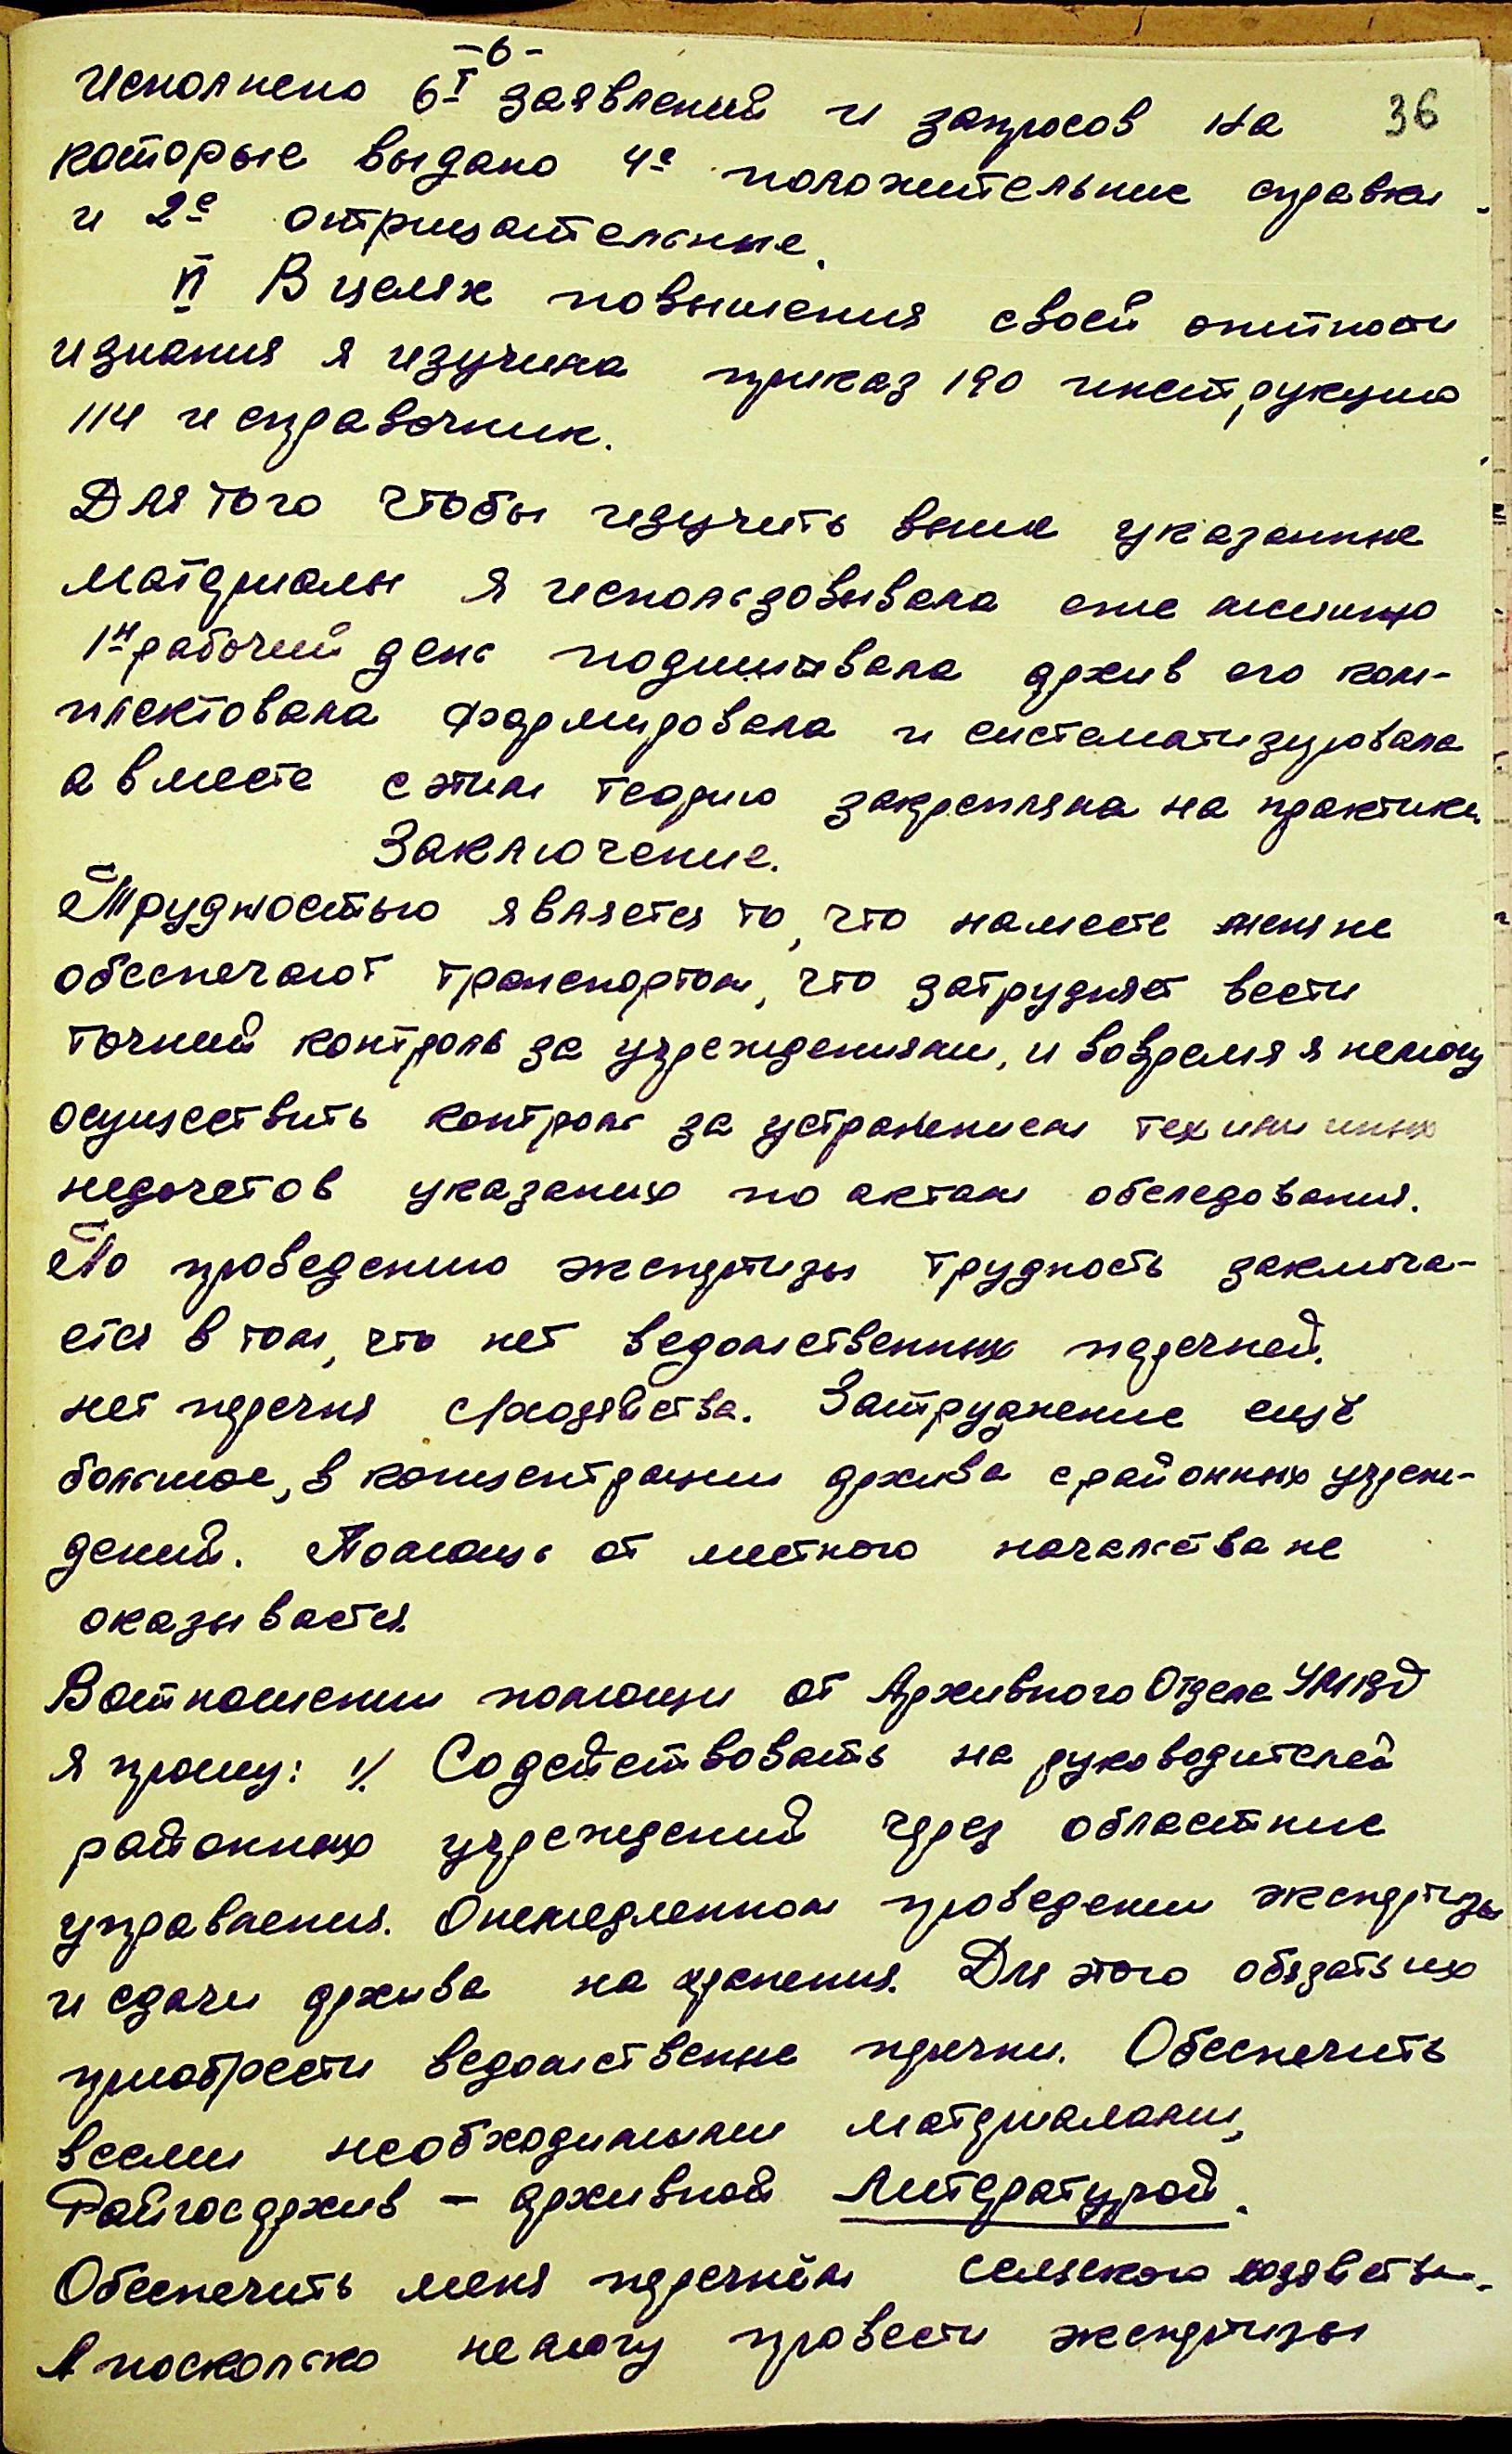 -6-
36
Исполнено 6I заявлений и запросов на
которые выдано 4е положительние справки
и 2е отрицательные.
II В целях повышения своей опитности
и знания я изучила приказ 190 инструкцию
114 и справочник.
Для того чтобы изучить выше указанные
материалы я использовывала еже
1й рабочий день подшивала архив его ком-
плектовала формировала и систематизировала
а вместе с этим теорию закрепляла на практики.
Заключение.
Трудностью является то, что на месте меня не
обеспечают транспортом, что затрудняет вести
точний контроль за учреждениями, и вовремя я немогу
осуществить контроль за устранением
недочетов указаних по актам обследования.
По проведению экспертизы трудность заключа-
ется в том, что нет ведомственных перечней.
нет перечня с/хозяйства. Затруднение ещё
большое, в концентрации архива с районных учреж-
дений. Помощь от местного начальства не
оказывается.
В отношении помощи от Архивного Отдела УМВД
я прошу: 1/. Содействовать на руководителей
районных учреждений через областние
управления. О немедленном проведении экспертизы
и сдачи архива на хранения. Для этого обязать их
приобрести ведомственне перечни. Обеспечить
всеми необходимыми материалами,
Райгосархив - архивной литературой.
Обеспечить меня перечнём сельского хозяйства.
А поскольько немогу провести экспертизы